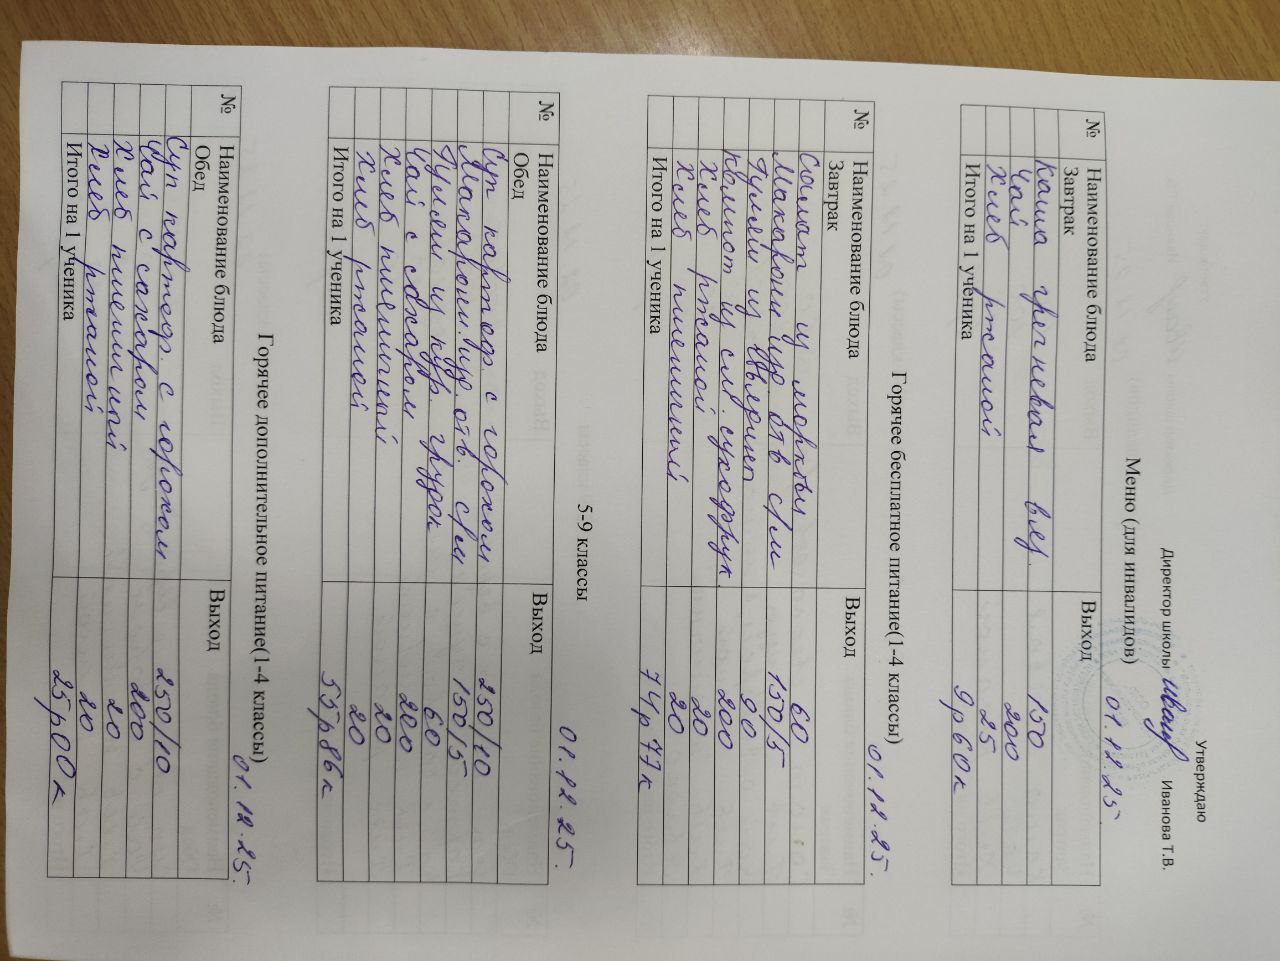 Утверждаю
Директор школы Иванова Т.В.
Меню (для инвалидов) 01.12.25
№ Наименование блюда Выход
Завтрак
Каша гречневая вяз. 150
Чай 200
Хлеб ржаной 25
Итого на 1 ученика 9р60к
Горячее бесплатное питание(1-4 классы) 01.12.25.
№ Наименование блюда Выход
Завтрак
Салат из моркови 60
Макароны изд. отв с/м 150/5
Гуляш из 90
Компот из см. сухофрук. 200
Хлеб ржаной 20
Хлеб пшеничный 20
Итого на 1 ученика 74р77к
5-9 классы 01.12.25.
№ Наименование блюда Выход
Обед
Суп картоф. с горохом 250/10
Макарон. изд. отв. с/м 150/5
Гуляш из кур. грудок 60
Чай с сахаром 200
Хлеб пшеничный 20
Хлеб ржаной 20
Итого на 1 ученика 55р86к
Горячее дополнительное питание(1-4 классы) 01.12.25.
№ Наименование блюда Выход
Обед
Суп картоф. с горохом 250/10
Чай с сахаром 200
Хлеб пшеничный 20
Хлеб ржаной 20
Итого на 1 ученика 25р00к